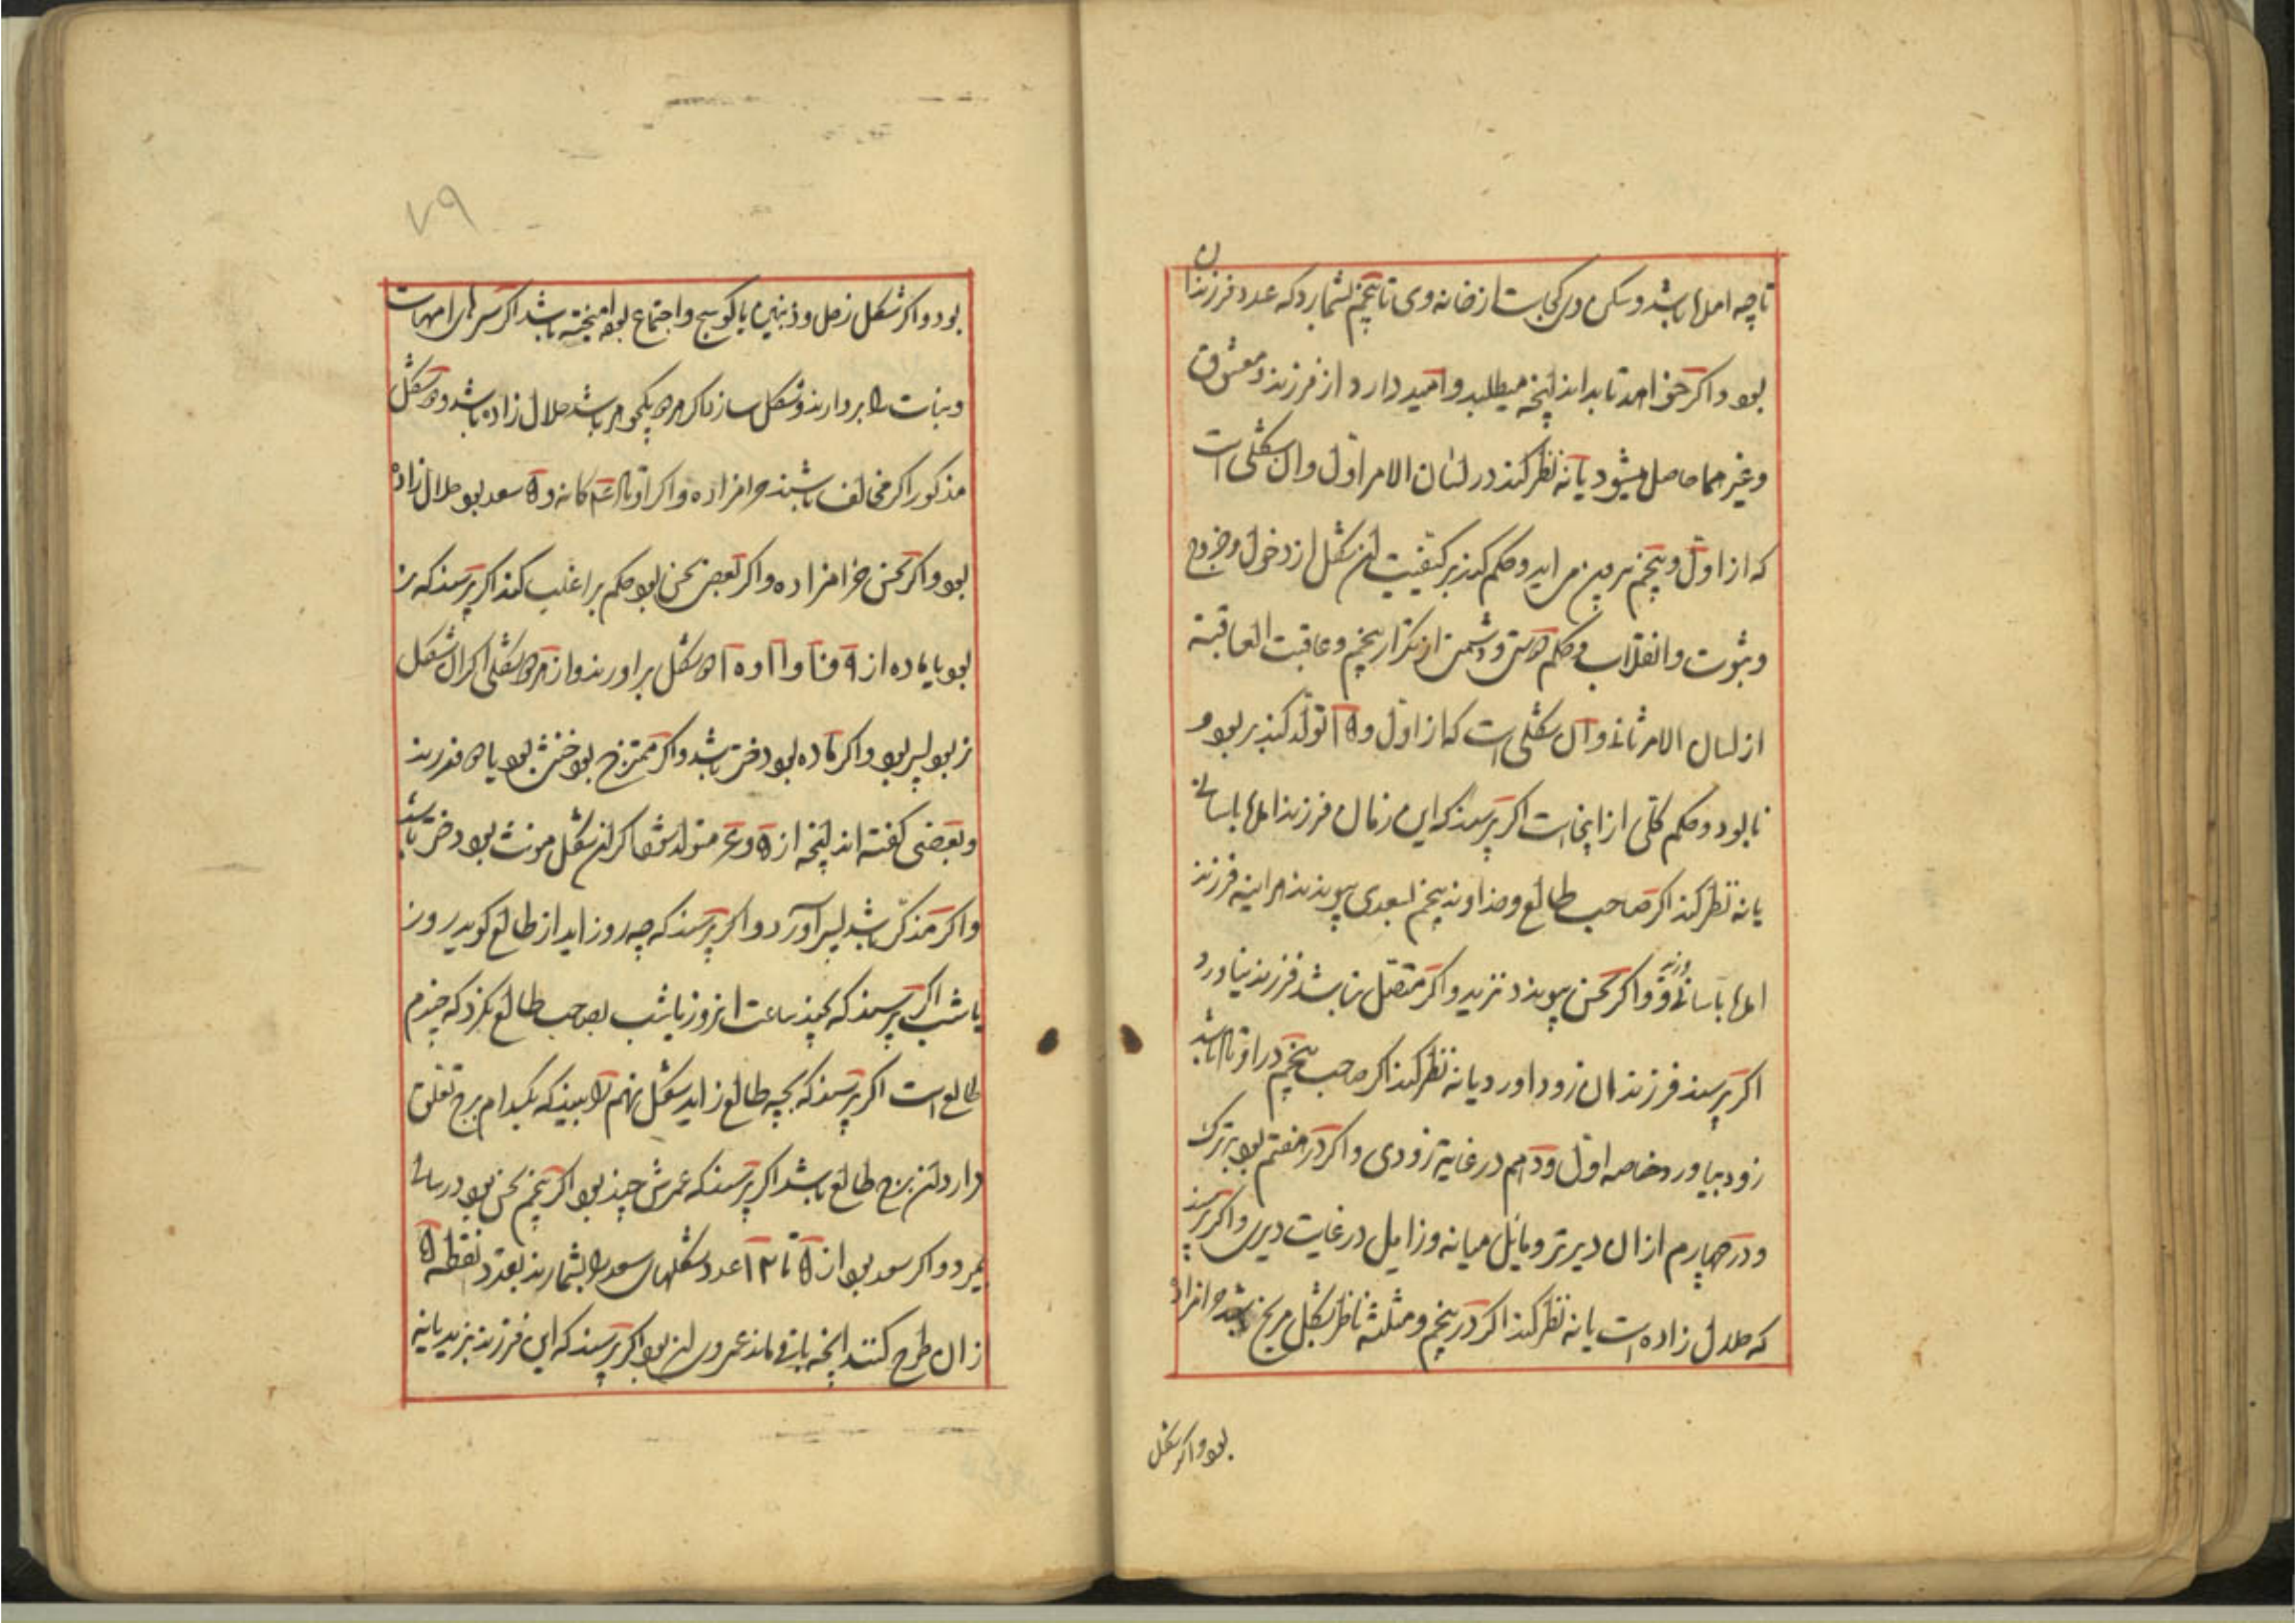 تا چه اصل باشد و سکن وی کجاست از خانه وی تا پنجم بشمارد که عدد فرزندان
بود و اگر خواهد تا بداند اینچه میطلبد و امید دارد از فرزند و معشوق
و غیرهما حاصل میشود یا نه نظر کند در لسان الامر اول و آن شکلی است
که از اول و پنجم بیرون می اید و حکم کند بر کیفیت آن شکل از دخول و خروج
و ثبوت و انقلاب و حکم دوستی و دشمنی از تکرار پنجم و عاقبت العاقبة
از لسان الامر ثانی و آن شکلی است که از اول و ۱۵ تولد کند بر بود و
نابود و حکم کلی از اینجاست اگر پرسند که این زمان فرزند اصلها باسانی
یا نه نظر کند اگر صاحب طالع و خداوند پنجم بسعدی پیوندند هر اینه فرزند
باسانی و اگر بنحس پیوندد نزید و اگر متصل نباشد فرزند نیاورد
اگر پرسند فرزند زود اورد یا نه نظر کند اگر صاحب پنجم در اوتاد باشد
زود بیاورد خاصه اول و دهم در غایة زودی و اگر در هفتم بود بزرک
و در چهارم از ان دیرتر و مایل میانه و زایل در غایت دیری و اگر پرسند
که حلال زاده است یا نه نظر کند اگر در پنجم و مثلثه ناظر بشکل مریخ باشد حرامزاده
بود و اگر شکل
۷۹
بود و اگر شکل زحل و ذنبین یا کوسج و اجتماع بود امیخته باشد اگر سرهای امهات
و بنات را بردارند و شکل سازند اگر هر دو یکجوهر باشد حلال زاده باشد و دو شکل
مذکور اگر مخالف باشند حرامزاده و اگر اوتاد کانه و ۵ سعد بود حلال زاده
بود و اگر نحس حرامزاده و اگر بعضی نحس بود حکم بر اغلب کند اگر پرسند که نر
بود یا ماده از ۹ و ۱۰ و ۱۱ و ۱۵ دو شکل براورند و از هر دو شکلی اگر ان شکل
نر بود پسر بود و اگر ماده بود دختر باشد و اگر ممتزج بود خنثی بود یا دو فرزند
و بعضی گفته اند اینچه از ۵ و متولد شود اگر ان شکل مونث بود دختر باشد
و اگر مذکر باشد پسر آورد و اگر پرسند که چه روز اید از طالع گوید روز
یا شب اگر پرسند که بچند ساعت از روز یا شب بصاحب طالع نگرد که چندم
طالع است اگر پرسند که بچه طالع زاید شکل نهم را ببیند که بکدام برج تعلق
دارد ان برج طالع باشد اگر پرسند که عمرش چند بود اگر پنجم نحس بود در سالی
بمیرد و اگر سعد بود از ۵ تا ۱۲ عدد شکلهای سعد را بشمارند بعدد نقطه ۵
از ان طرح کنند انچه باقی ماند عمر وی ان بود اگر پرسند که این فرزند بزید یا نه